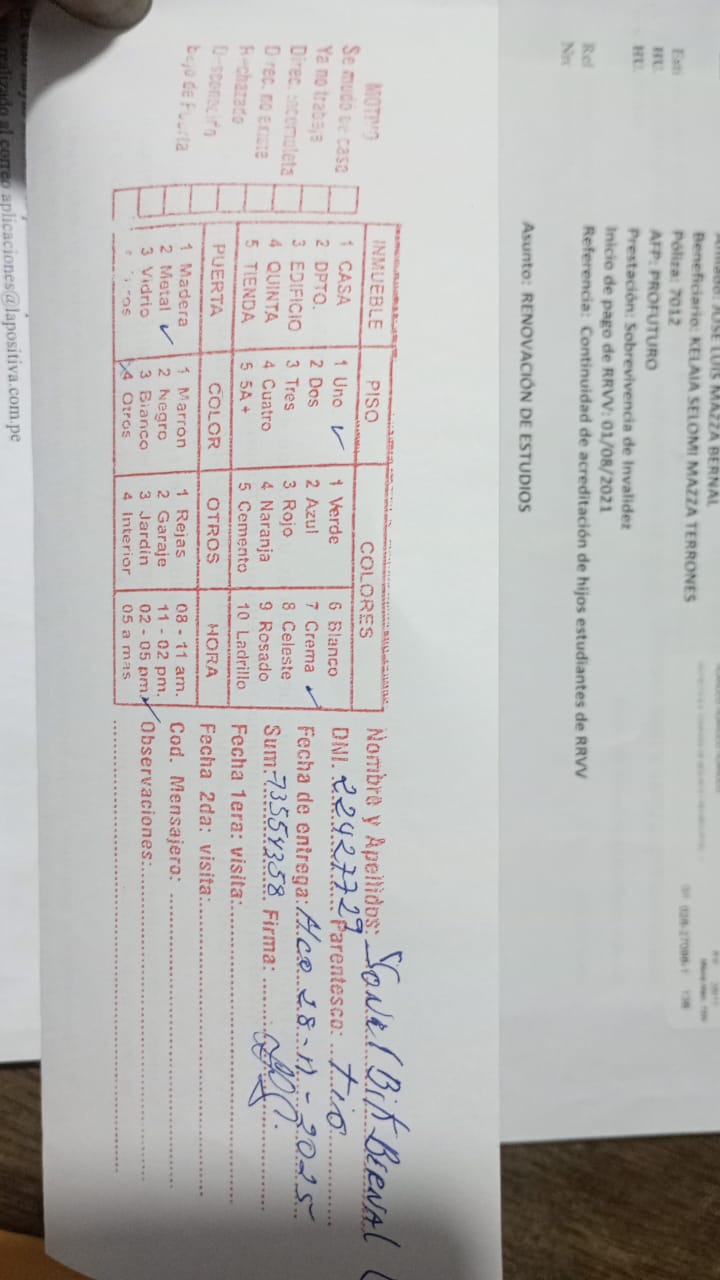 JOSE LUIS MAZZA BERNAL
Beneficiario: KELAIA SELOMI MAZZA TERRONES
Póliza: 7012
AFP: PROFUTURO
Prestación: Sobrevivencia de Invalidez
Inicio de pago de RRVV: 01/08/2021
Referencia: Continuidad de acreditación de hijos estudiantes de RRVV
Asunto: RENOVACIÓN DE ESTUDIOS
MOTIVO
Se mudó de casa
Ya no trabaja
Direc. incompleta
Direc. no existe
Rechazado
Desconocido
bajo de Puerta
INMUEBLE PISO COLORES
1 CASA 1 Uno ✓ 1 Verde 6 Blanco
2 DPTO. 2 Dos 2 Azul 7 Crema ✓
3 EDIFICIO 3 Tres 3 Rojo 8 Celeste
4 QUINTA 4 Cuatro 4 Naranja 9 Rosado
5 TIENDA 5 5A + 5 Cemento 10 Ladrillo
PUERTA COLOR OTROS HORA
1 Madera 1 Marron 1 Rejas 08 - 11 am.
2 Metal ✓ 2 Negro 2 Garaje 11 - 02 pm.
3 Vidrio 3 Blanco 3 Jardín 02 - 05 pm. ✓
4 Otros 4 Interior 05 a mas
Nombre y Apellidos: BERNAL
DNI. 22427729 Parentesco: tio
Fecha de entrega: 2025
Sum: 73554358 Firma:
Fecha 1era: visita:
Fecha 2da: visita:
Cod. Mensajero:
Observaciones:
realizado al correo aplicaciones@lapositiva.com.pe